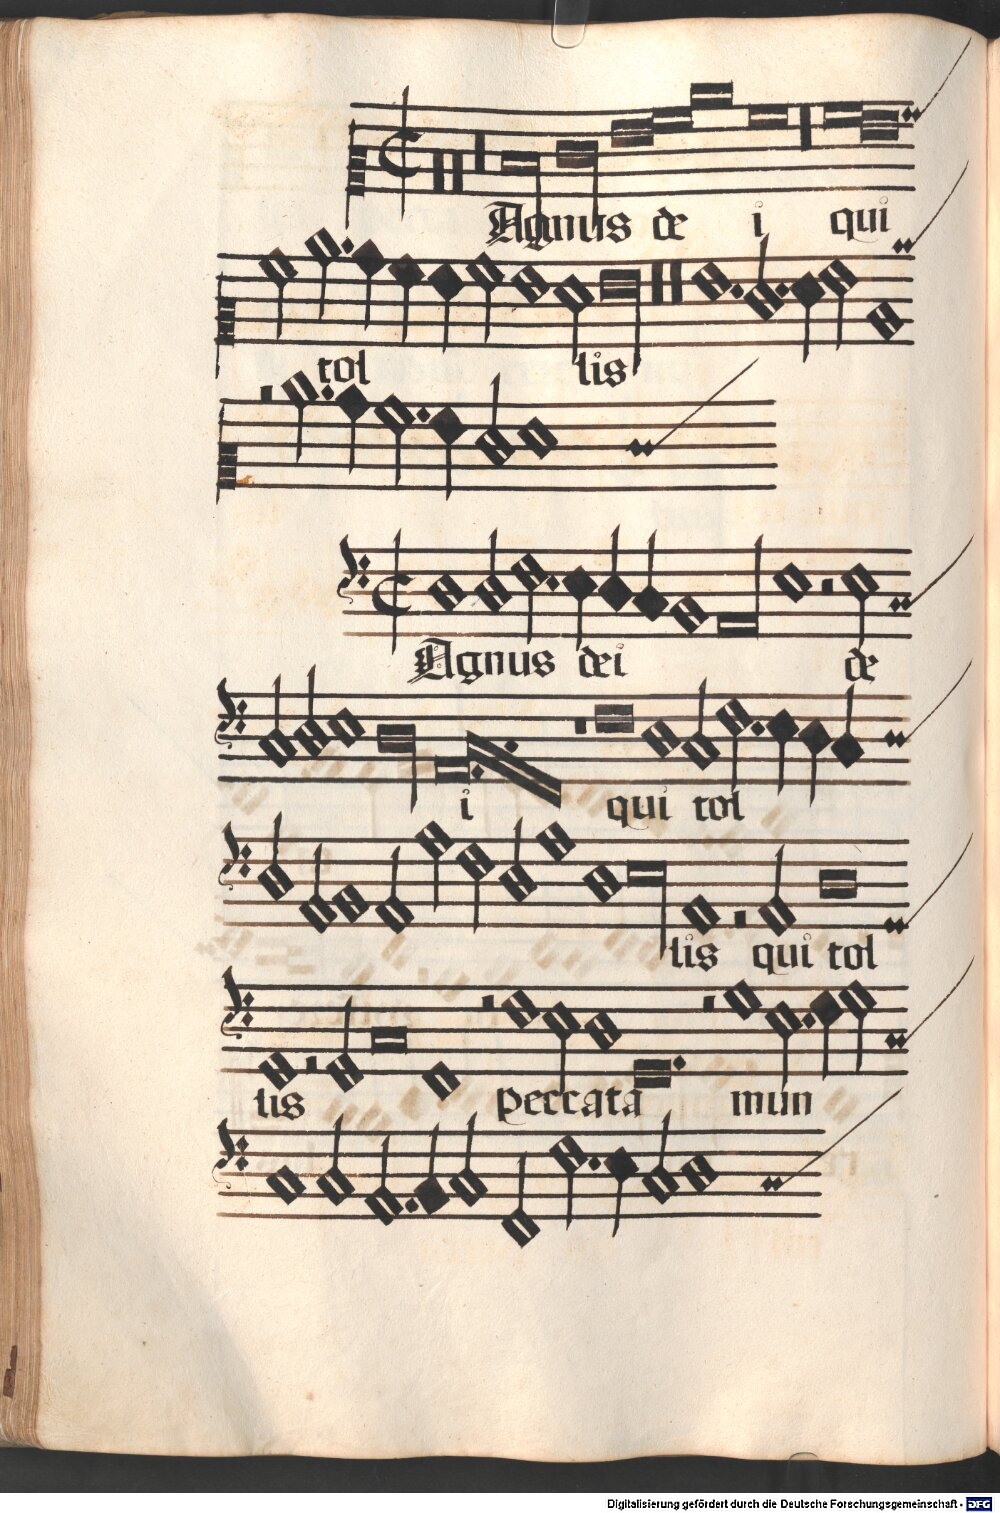 Agnus de i qui
tol lis
Agnus dei de
i qui tol
lis qui tol
lis peccata mun
Digitalisierung gefördert durch die Deutsche Forschungsgemeinschaft - DFG